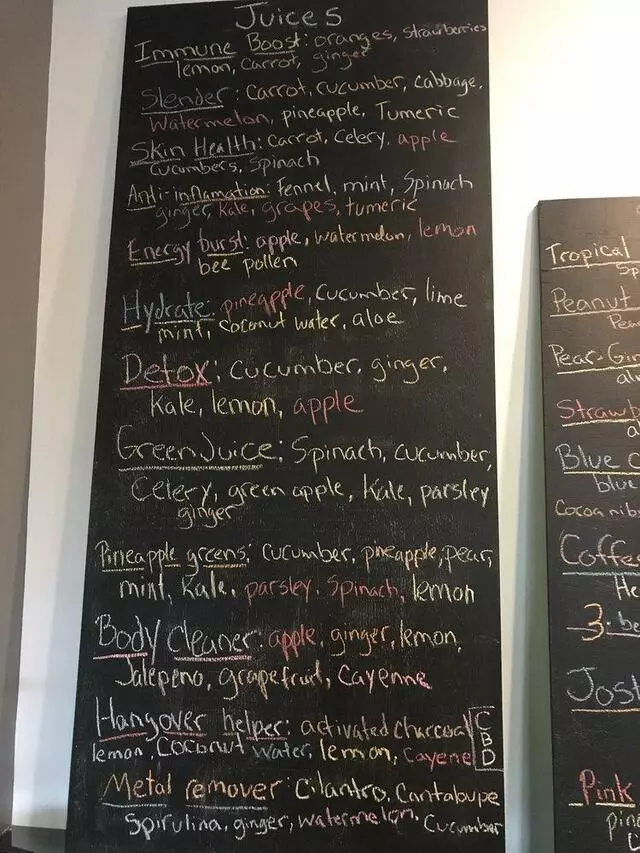 Juices
Immune Boost: oranges, strawberries
lemon, carrot, ginger
Slender: Carrot, cucumber, cabbage,
Watermelon, pineapple, Tumeric
Skin Health: Carrot, Celery, apple
cucumbers, Spinach
Anti-inflamation: Fennel, mint, Spinach
ginger, Kale, grapes, tumeric
Energy burst: apple, watermelon, lemon
bee pollen
Hydrate: pineapple, cucumber, lime
mint, coconut water, aloe
Detox: cucumber, ginger,
Kale, lemon, apple
Green Juice: Spinach, cucumber,
Celery, green apple, Kale, parsley
ginger
Pineapple greens: cucumber, pineapple, pear,
mint, Kale, parsley, Spinach, lemon
Body Cleaner: apple, ginger, lemon,
Jalepeno, grapefruit, Cayenne
Hangover helper: activated charcoal CBD
lemon, Coconut water, lemon, Cayene
Metal remover: Cilantro, Cantaloupe
Spirulina, ginger, watermelon, Cucumber
Tropical
Sp
Peanut
Pea
Pear-Gin
al
Strawb
al
Blue C
blue
Cocoa nibs
Coffee
He
3: be
Jost
Pink
pine